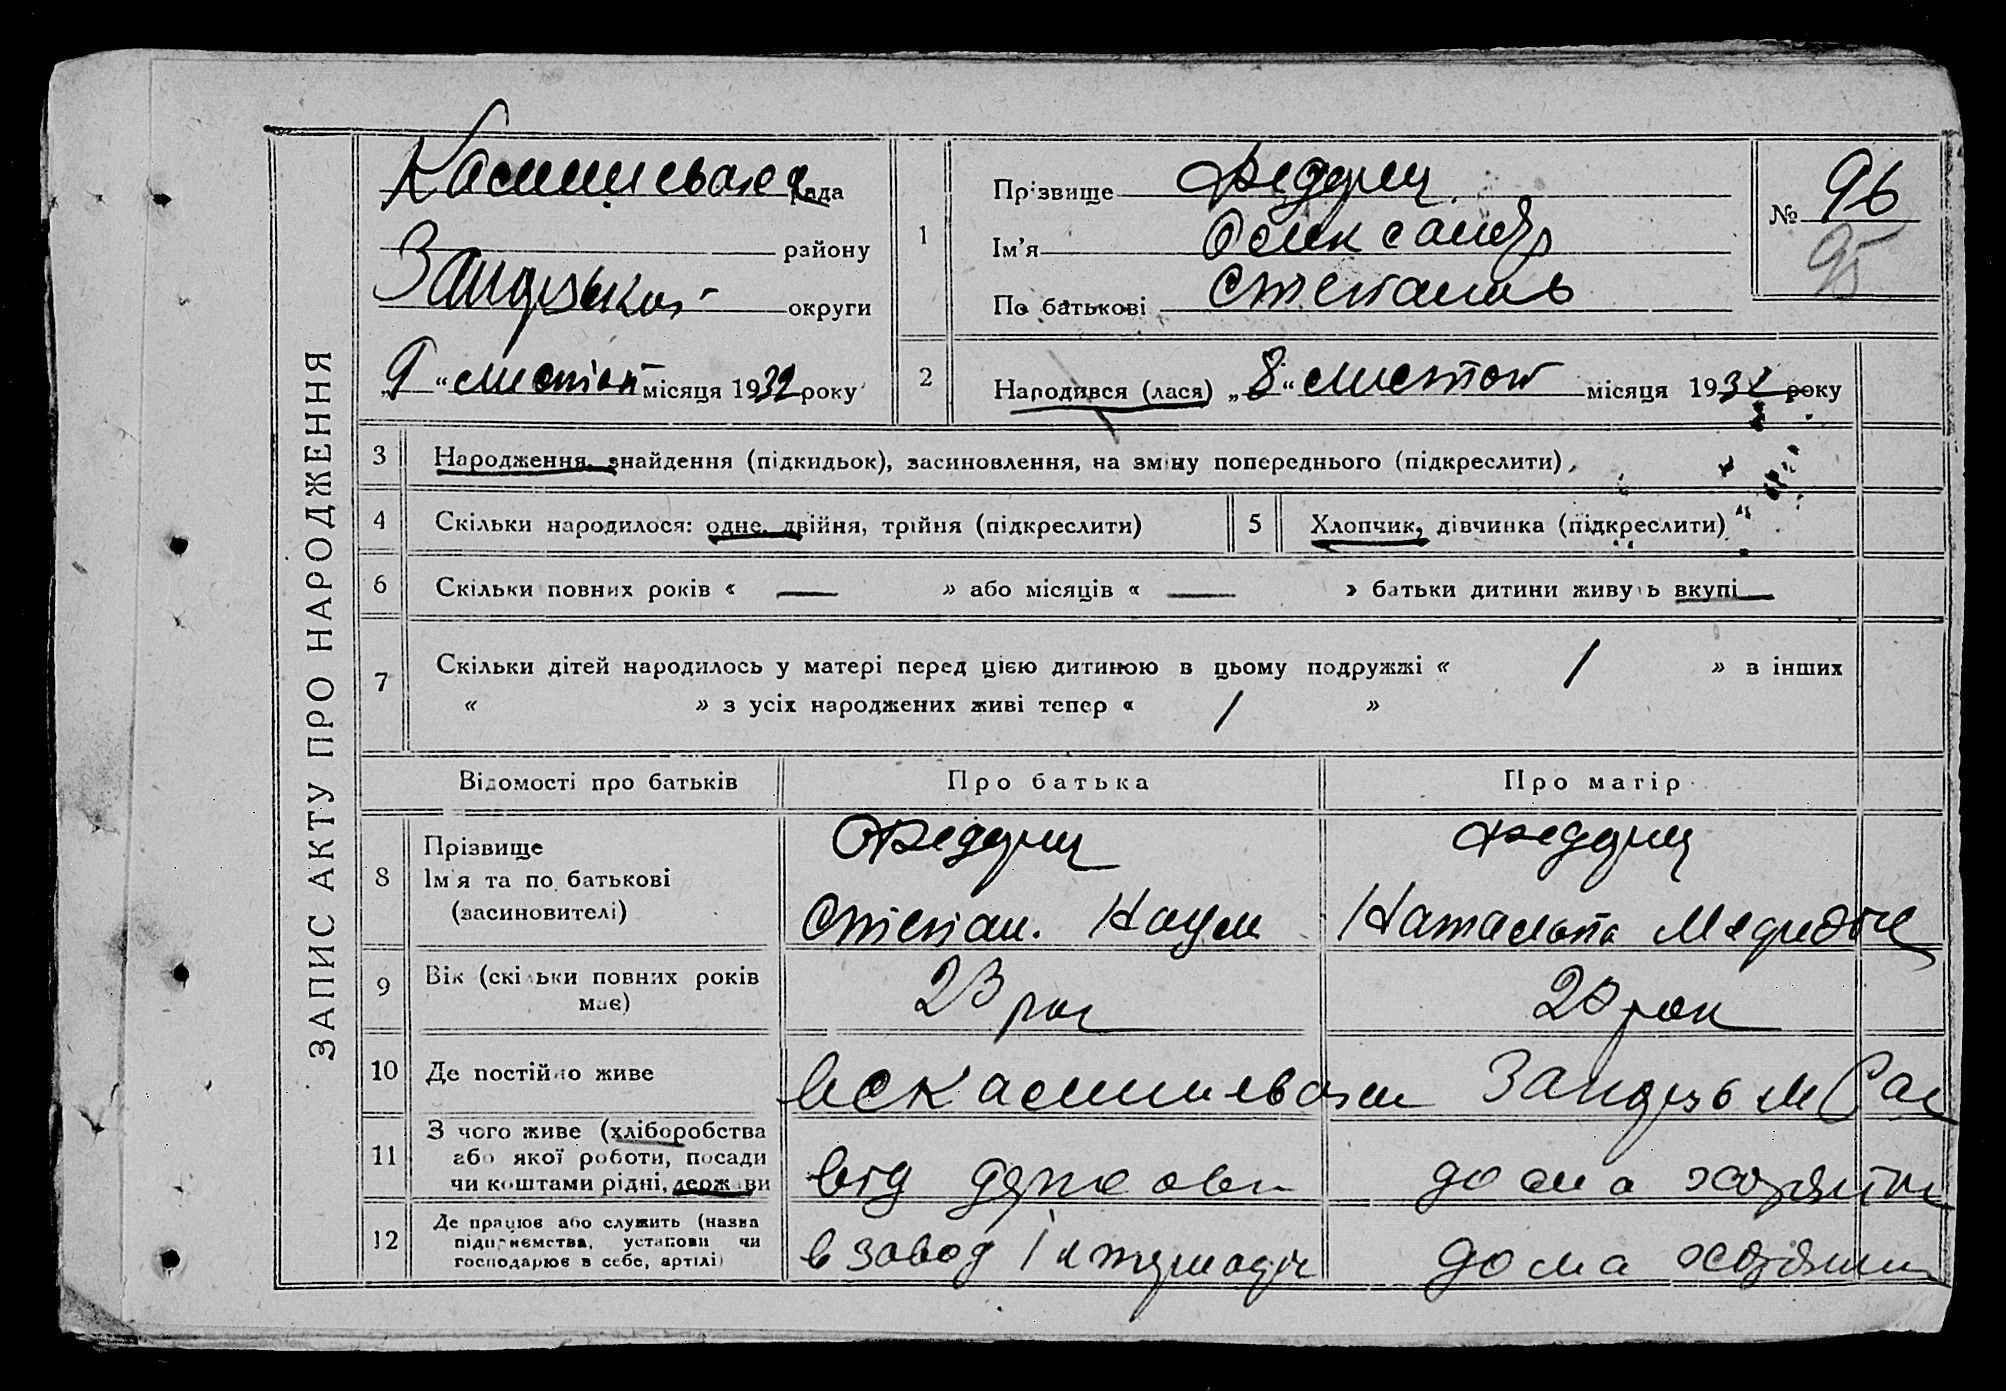 ЗАПИС АКТУ ПРО НАРОДЖЕННЯ
рада
району
округи
9 " листоп місяця 1932 року
1
Прізвище Феддриц
Ім'я Олександр
По батькові Степанов
№ 96
95
2
Народився (лася) „ 8 " листоп місяця 193 року
3 Народження, знайдення (підкидьок), засиновлення, на зміну попереднього (підкреслити)
4 Скільки народилося: одне, двійня, трійня (підкреслити)
5 Хлопчик, дівчинка (підкреслити)
6 Скільки повних років « — » або місяців « — » батьки дитини живуть вкупі
7 Скільки дітей народилось у матері перед цією дитиною в цьому подружжі « 1 » в інших
« » з усіх народжених живі тепер « 1 »
Відомості про батьків
Про батька
Про матір
8 Прізвище
Ім'я та по батькові
(засиновителі)
Феддриц
Степан. Наум
Феддриц
Наталья
9 Вік (скільки повних років
має)
23 рок
20 рок
10 Де постійно живе
11 З чого живе (хліборобства
або якої роботи, посади
чи коштами рідні, держави
від держави
дома хозяйн
12 Де працює або служить (назва
підприємства, установи чи
господарює в себе, артілі)
в завод
дома хозяйн